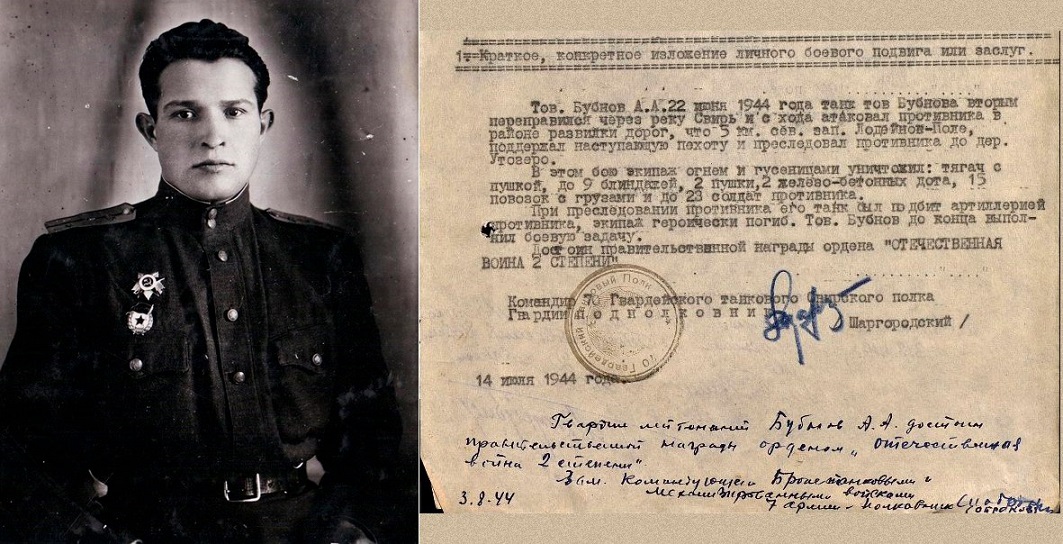 1 Краткое, конкретное изложение личного боевого подвига или заслуг.
Тов. Бубнов А.А.22 июня 1944 года танк тов Бубнова вторым
переправился через реку Свирь и с хода атаковал противника в
районе развилки дорог, что 5 км. сев. зап. Лодейное-Поле,
поддержал наступающую пехоту и преследовал противника до дер.
Утозеро.
В этом бою экипаж огнем и гусеницами уничтожил: тягач с
пушкой, до 9 блиндажей, 2 пушки,2 железо-бетонных дота, 15
повозок с грузами и до 23 солдат противника.
При преследовании противника его танк был подбит артиллерией
противника, экипаж героически погиб. Тов. Бубнов до конца выпол-
нил боевую задачу.
Достоин правительственной награды ордена "ОТЕЧЕСТВЕННАЯ
ВОИНА 2 СТЕПЕНИ"
Командир 7 Гвардейского танкового Свирского полка
Гвардии подполковник
Шаргородский /
14 июля 1944 года.
Гвардии лейтенант Бубнов А.А. достоин
правительственной награды орденом „Отечественная
война 2 степени".
Зам. Командующего Бронетанковыми и
механизированными войсками
3.8.44
7 армии - полковник